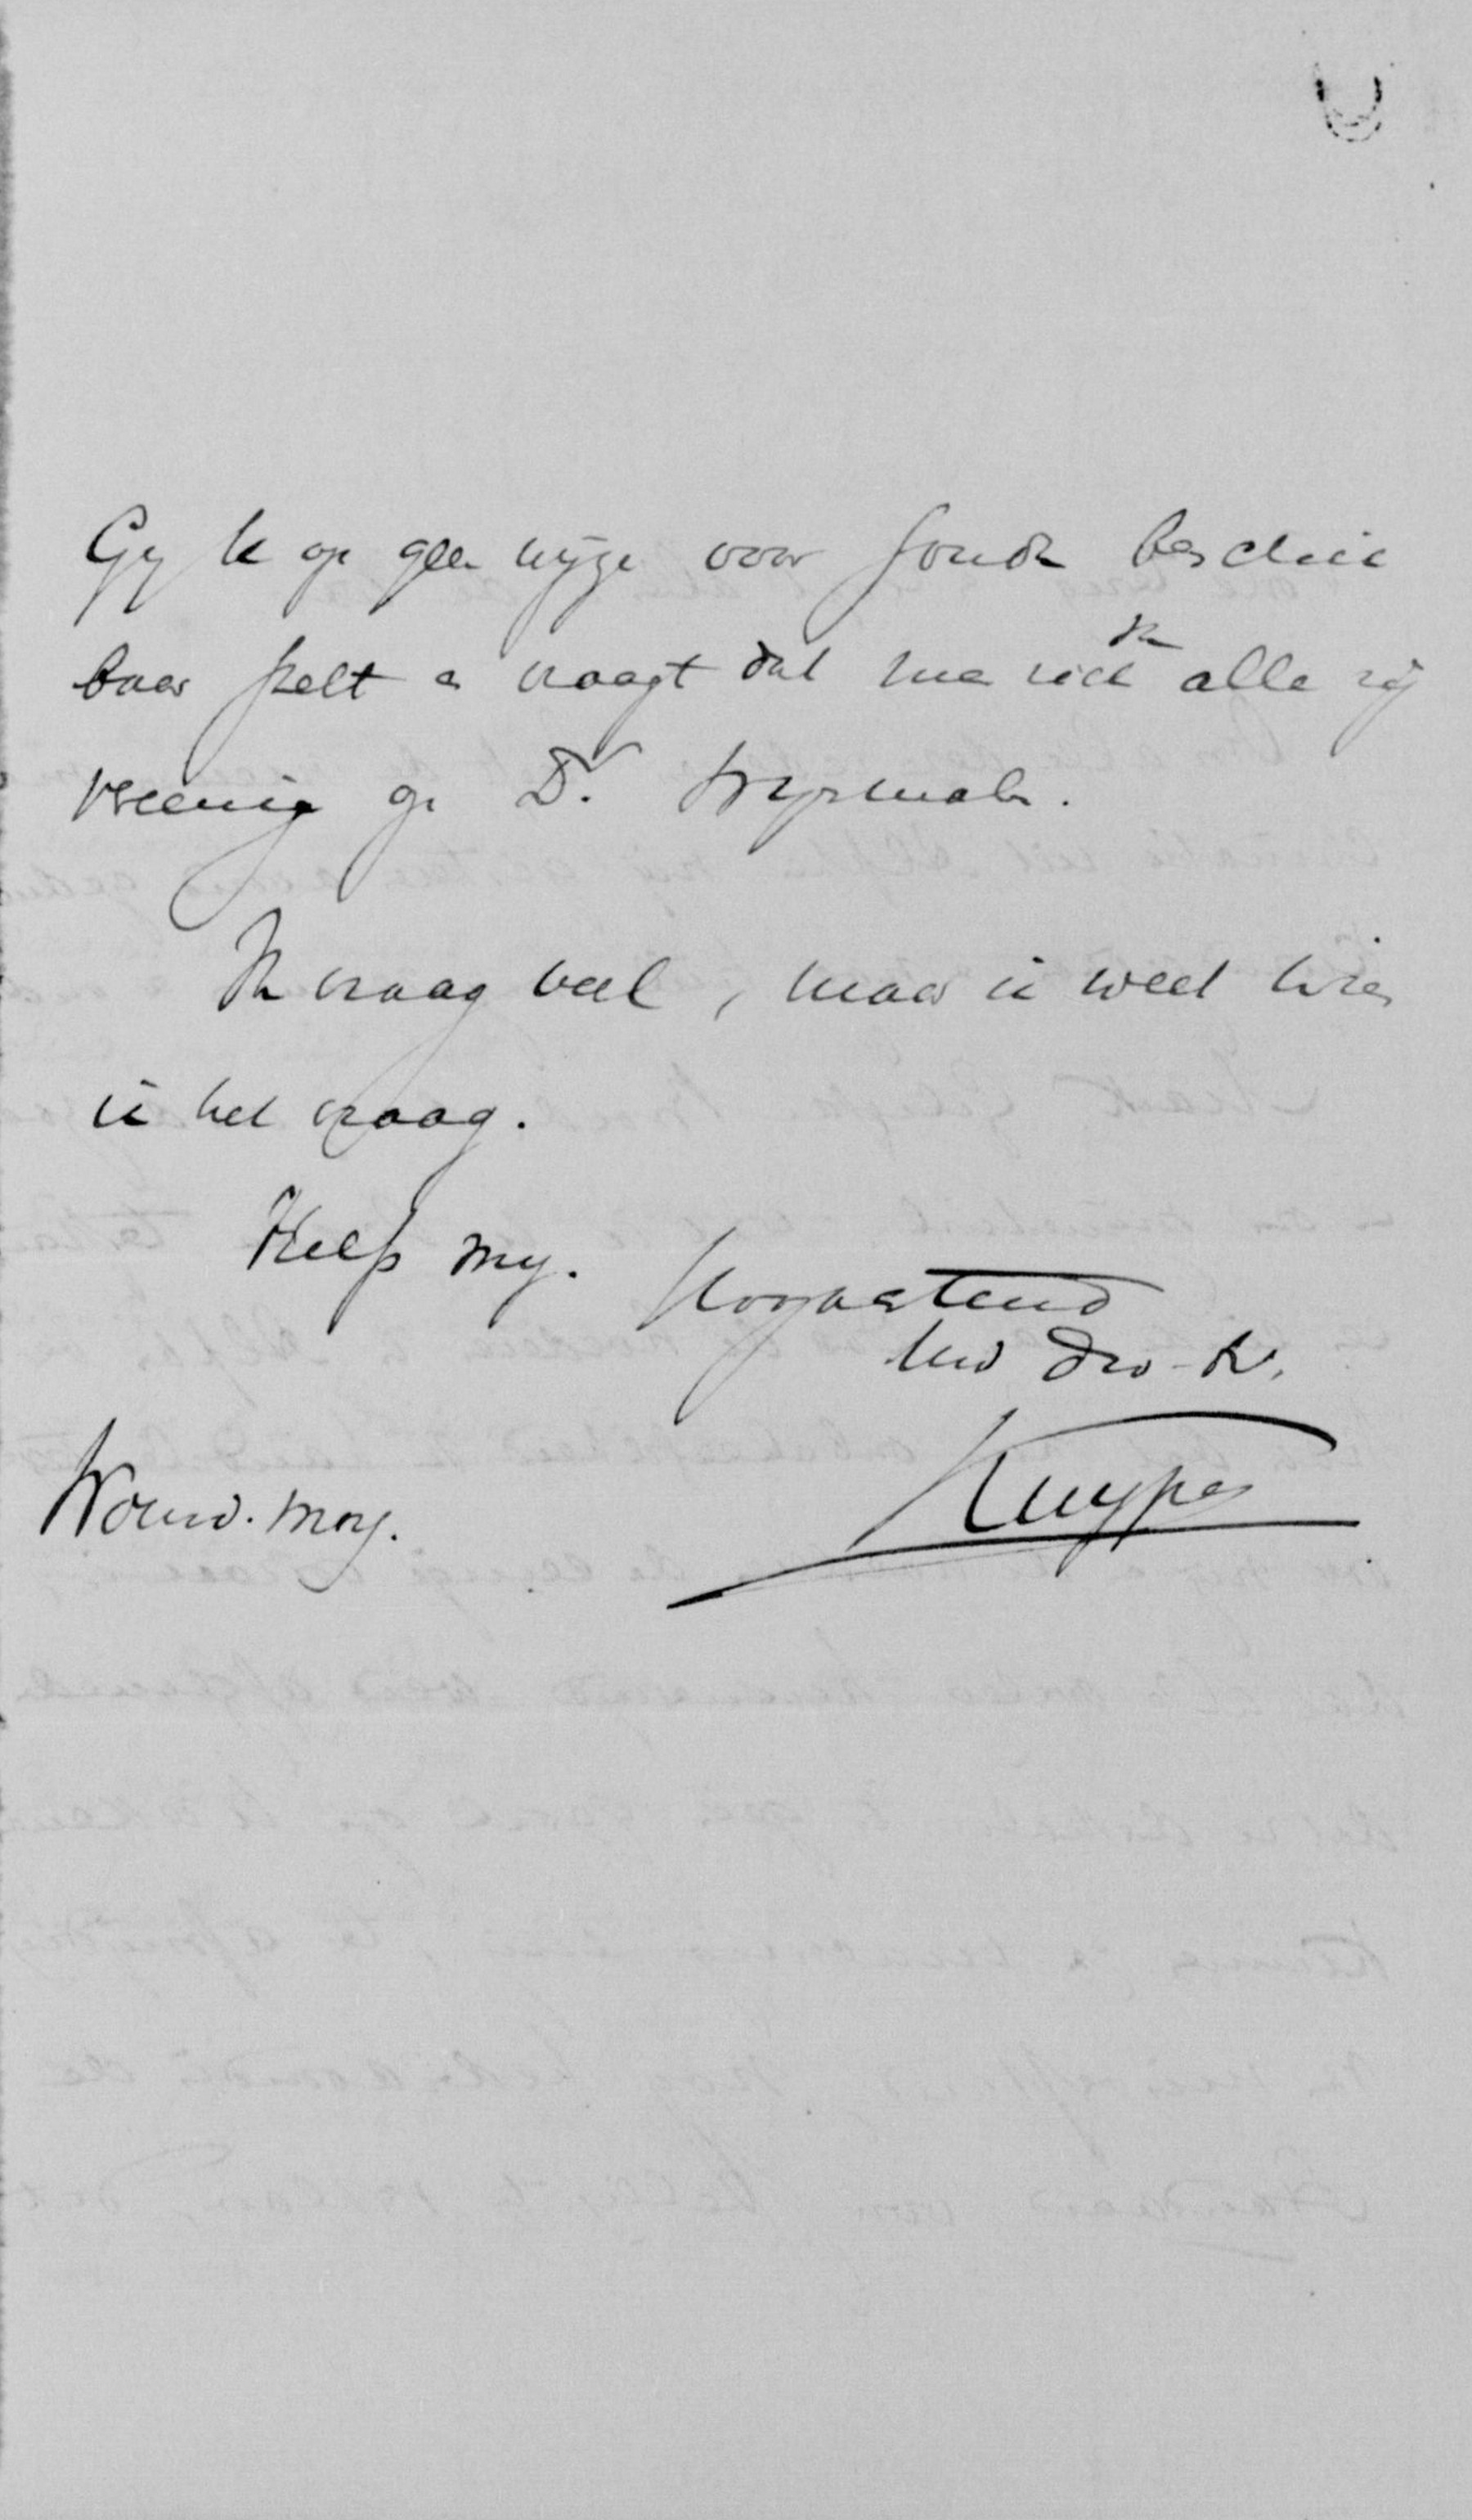 Gy U op geen wijze voor Gouda beschik
baar stelt en vraagt dat men zich alle zij
vereenig op Dr.
Ik vraag veel, maar ik weet wien
ik het vraag.
Help my. Hoogachtend
Uw dw. dr.
Kuyper
Woensd. morg.